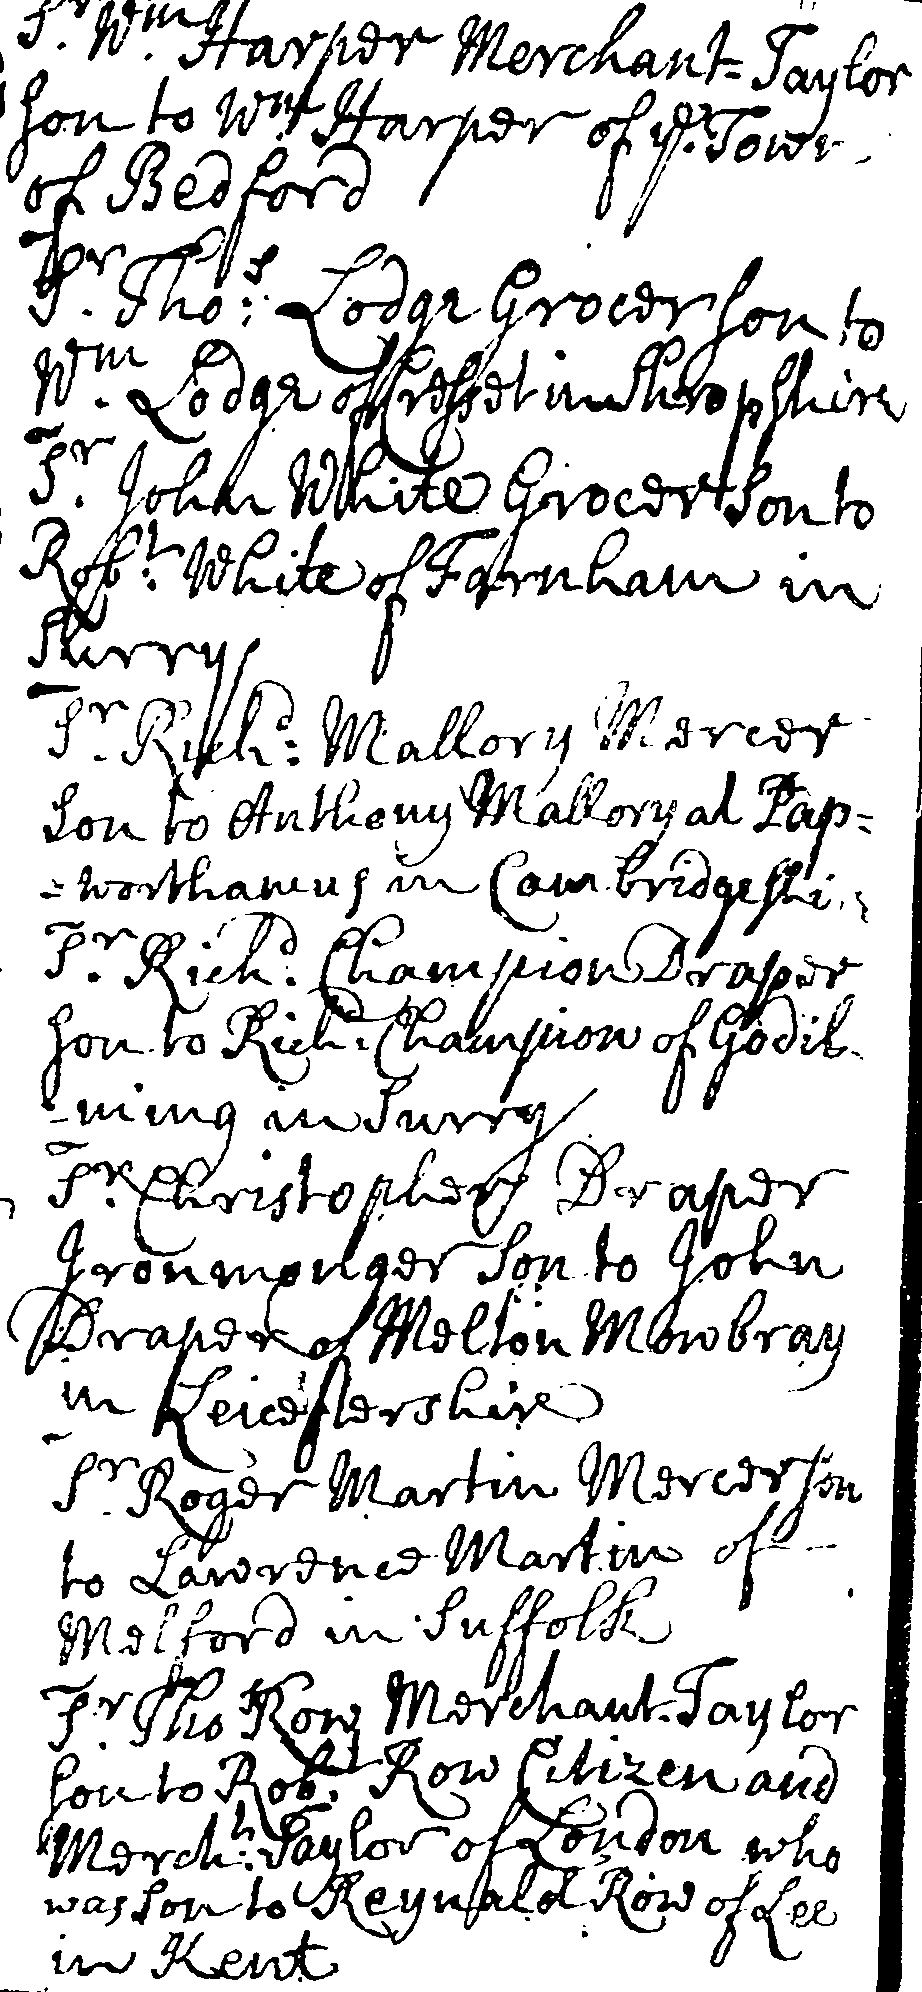 Sr. Wm. Harper Merchant=Taylor
Son to Wm. Harper of ye. Town
of Bedford
Sr. Thos: Lodge Grocer Son to
Wm. Lodge of Cresset in Shropshire
Sr. John White Grocer Son to
Robt: White of Farnham in
Surry
Sr. Richd: Mallory Mercer
Son to Anthony Mallory al Pap=
=worthamus in Cambridgeshi
Sr. Richd. Champion Draper
Son to Richd. Champion of Godil-
-ming in Surry
Sr. Christopher Draper
Ironmonger Son to John
Draper of Melton Mowbray
in Leicestershire
Sr. Roger Martin Mercer Son
to Lawrence Martin of
Melford in Suffolk
Sr. Tho Row Merchant-Taylor
Son to Robt. Row Citizen and
Mercht: Taylor of London who
was Son to Reynald Row of Lee
in Kent